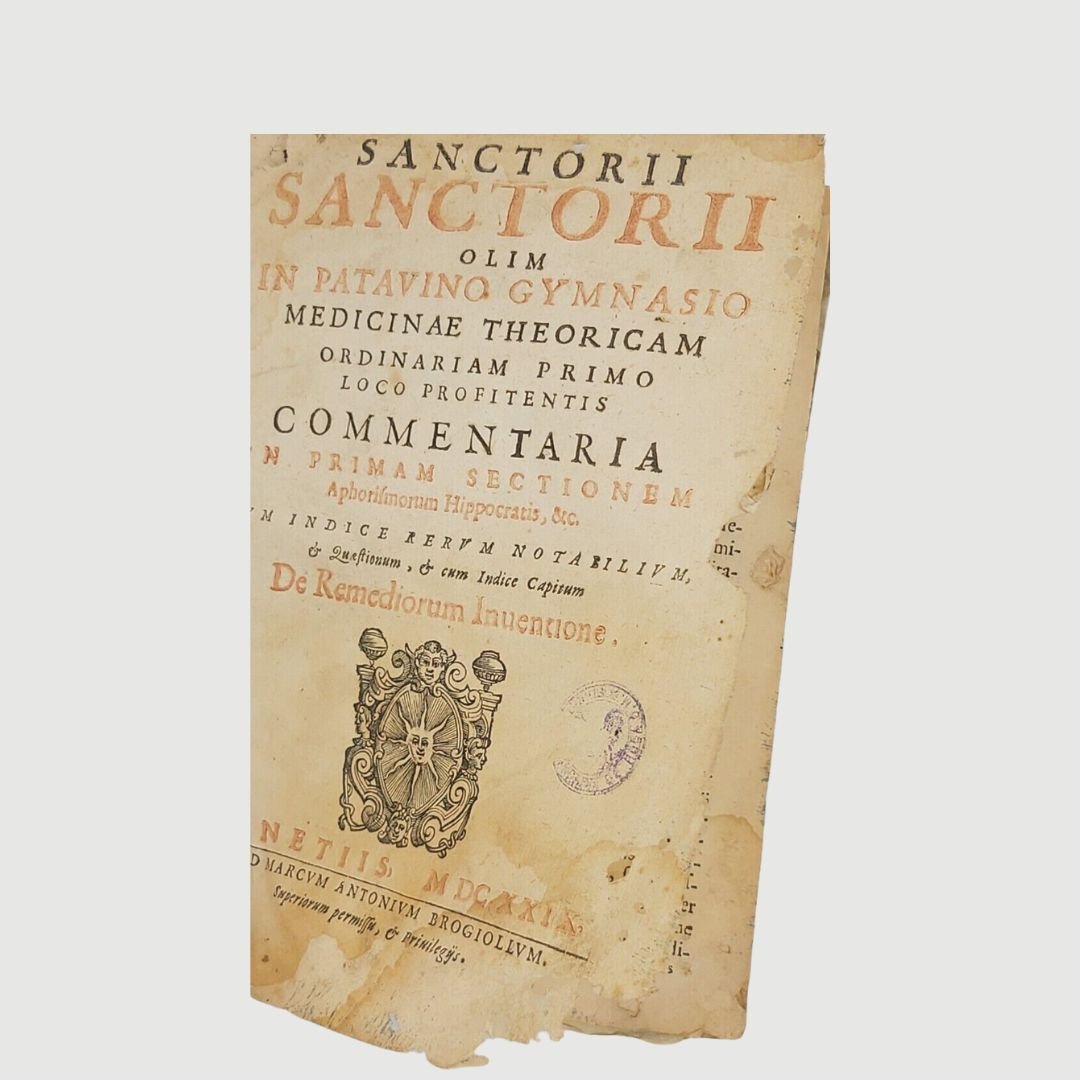 SANCTORII
SANCTORII
OLIM
IN PATAVINO GYMNASIO
MEDICINAE THEORICAM
ORDINARIAM PRIMO
LOCO PROFITENTIS
COMMENTARIA
N PRIMAM SECTIONEM
Aphoriſmorum Hippocratis, &c.
VM INDICE RERVM NOTABILIVM,
& Quæſtionum, & cum Indice Capitum
De Remediorum Inuentione.
NETIIS, MDCXXIX,
D MARCVM ANTONIVM BROGIOLLVM.
Superiorum permiſſu, & Priuilegijs.